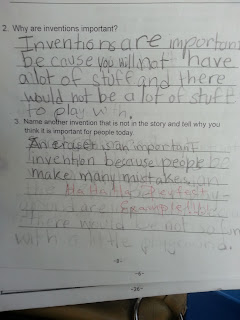 2. Why are inventions important?
Inventions are important
because you will not have
a lot of stuff and there
would not be a lot of stuff
to play with.
3. Name another invention that is not in the story and tell why you
think it is important for people today.
An eraser is an important
invention because people
make many mistakes.
Ha Ha Ha - Perfect
Example!
there would be not so fun
with a little playground.
-6-